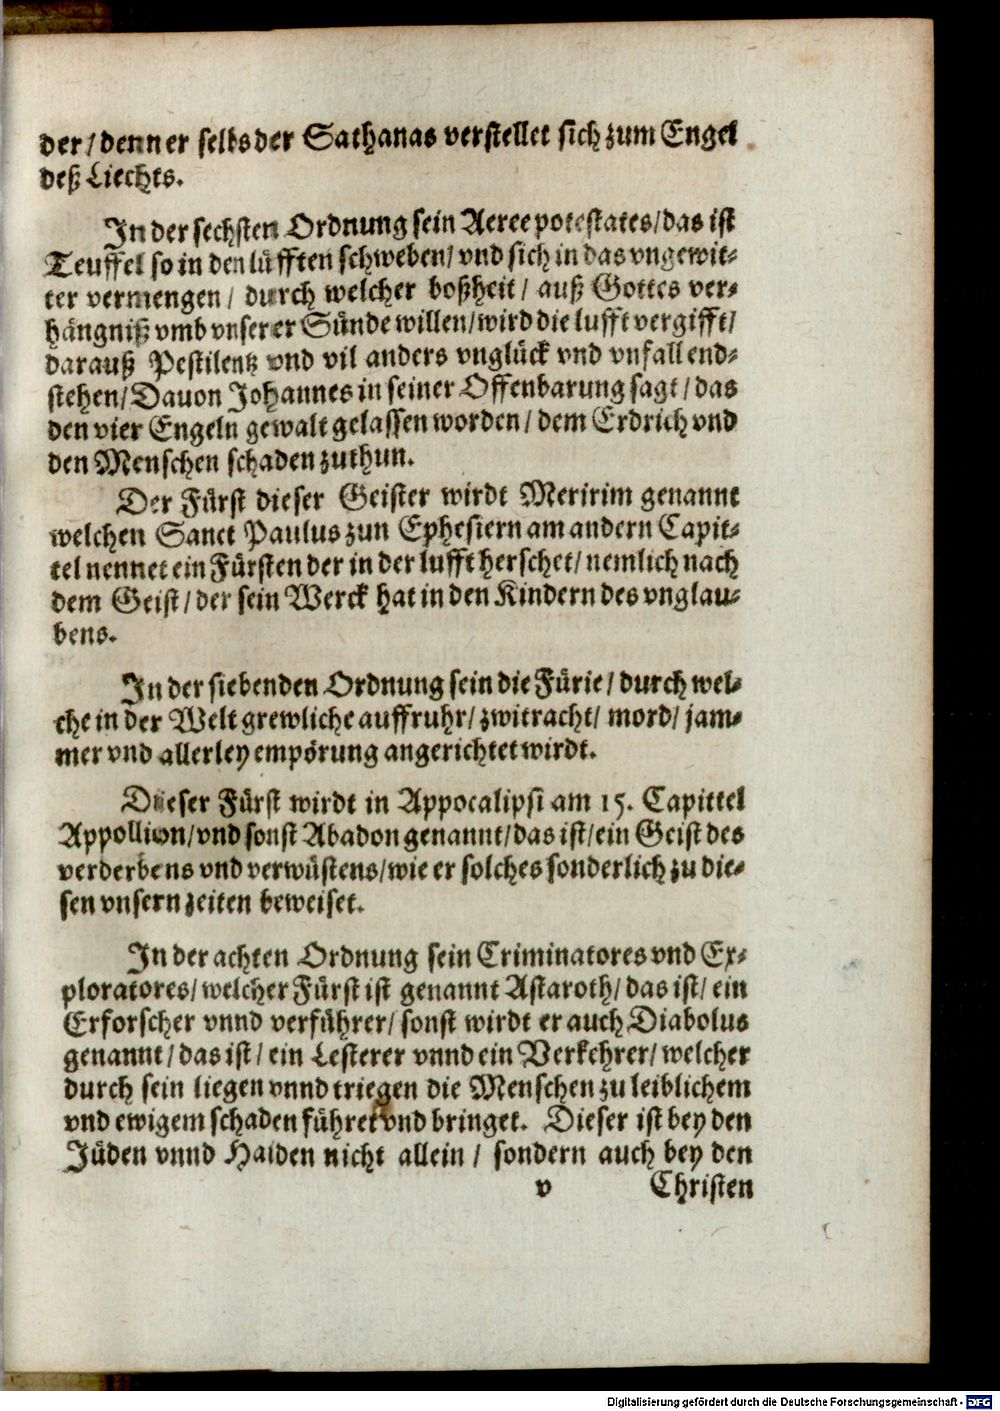 der/ denn er selbs der Sathanas verstellet sich zum Engel
deß Liechts.
In der sechsten Ordnung sein Aereepotestates/ das ist
Teuffel so in den lüfften schweben/ vnd sich in das vngewit-
ter vermengen/ durch welcher boßheit/ auß Gottes ver-
hängniß vmb vnserer Sünde willen/ wird die lufft vergifft/
darauß Pestilentz vnd vil anders vnglück vnd vnfall end-
stehen/ Dauon Johannes in seiner Offenbarung sagt/ das
den vier Engeln gewalt gelassen worden/ dem Erdrich vnd
den Menschen schaden zuthun.
Der Fürst dieser Geister wirdt Meririm genannt
welchen Sanct Paulus zun Ephesiern am andern Capit-
tel nennet ein Fürsten der in der lufft herschet/ nemlich nach
dem Geist/ der sein Werck hat in den Kindern des vnglau-
bens.
In der siebenden Ordnung sein die Fürie/ durch wel-
che in der Welt grewliche auffruhr/ zwitracht/ mord/ jam-
mer vnd allerley empörung angerichtet wirdt.
Dieser Fürst wirdt in Appocalipsi am 15. Capittel
Appollion/ vnd sonst Abadon genannt/ das ist/ ein Geist des
verderbens vnd verwüstens/ wie er solches sonderlich zu die-
sen vnsern zeiten beweiset.
In der achten Ordnung sein Criminatores vnd Ex-
ploratores/ welcher Fürst ist genannt Astaroth/ das ist/ ein
Erforscher vnnd verführer/ sonst wirdt er auch Diabolus
genannt/ das ist/ ein Lesterer vnnd ein Verkehrer/ welcher
durch sein liegen vnnd triegen die Menschen zu leiblichem
vnd ewigem schaden führet vnd bringet. Dieser ist bey den
Jüden vnnd Haiden nicht allein/ sondern auch bey den
v Christen
Digitalisierung gefördert durch die Deutsche Forschungsgemeinschaft - DFG